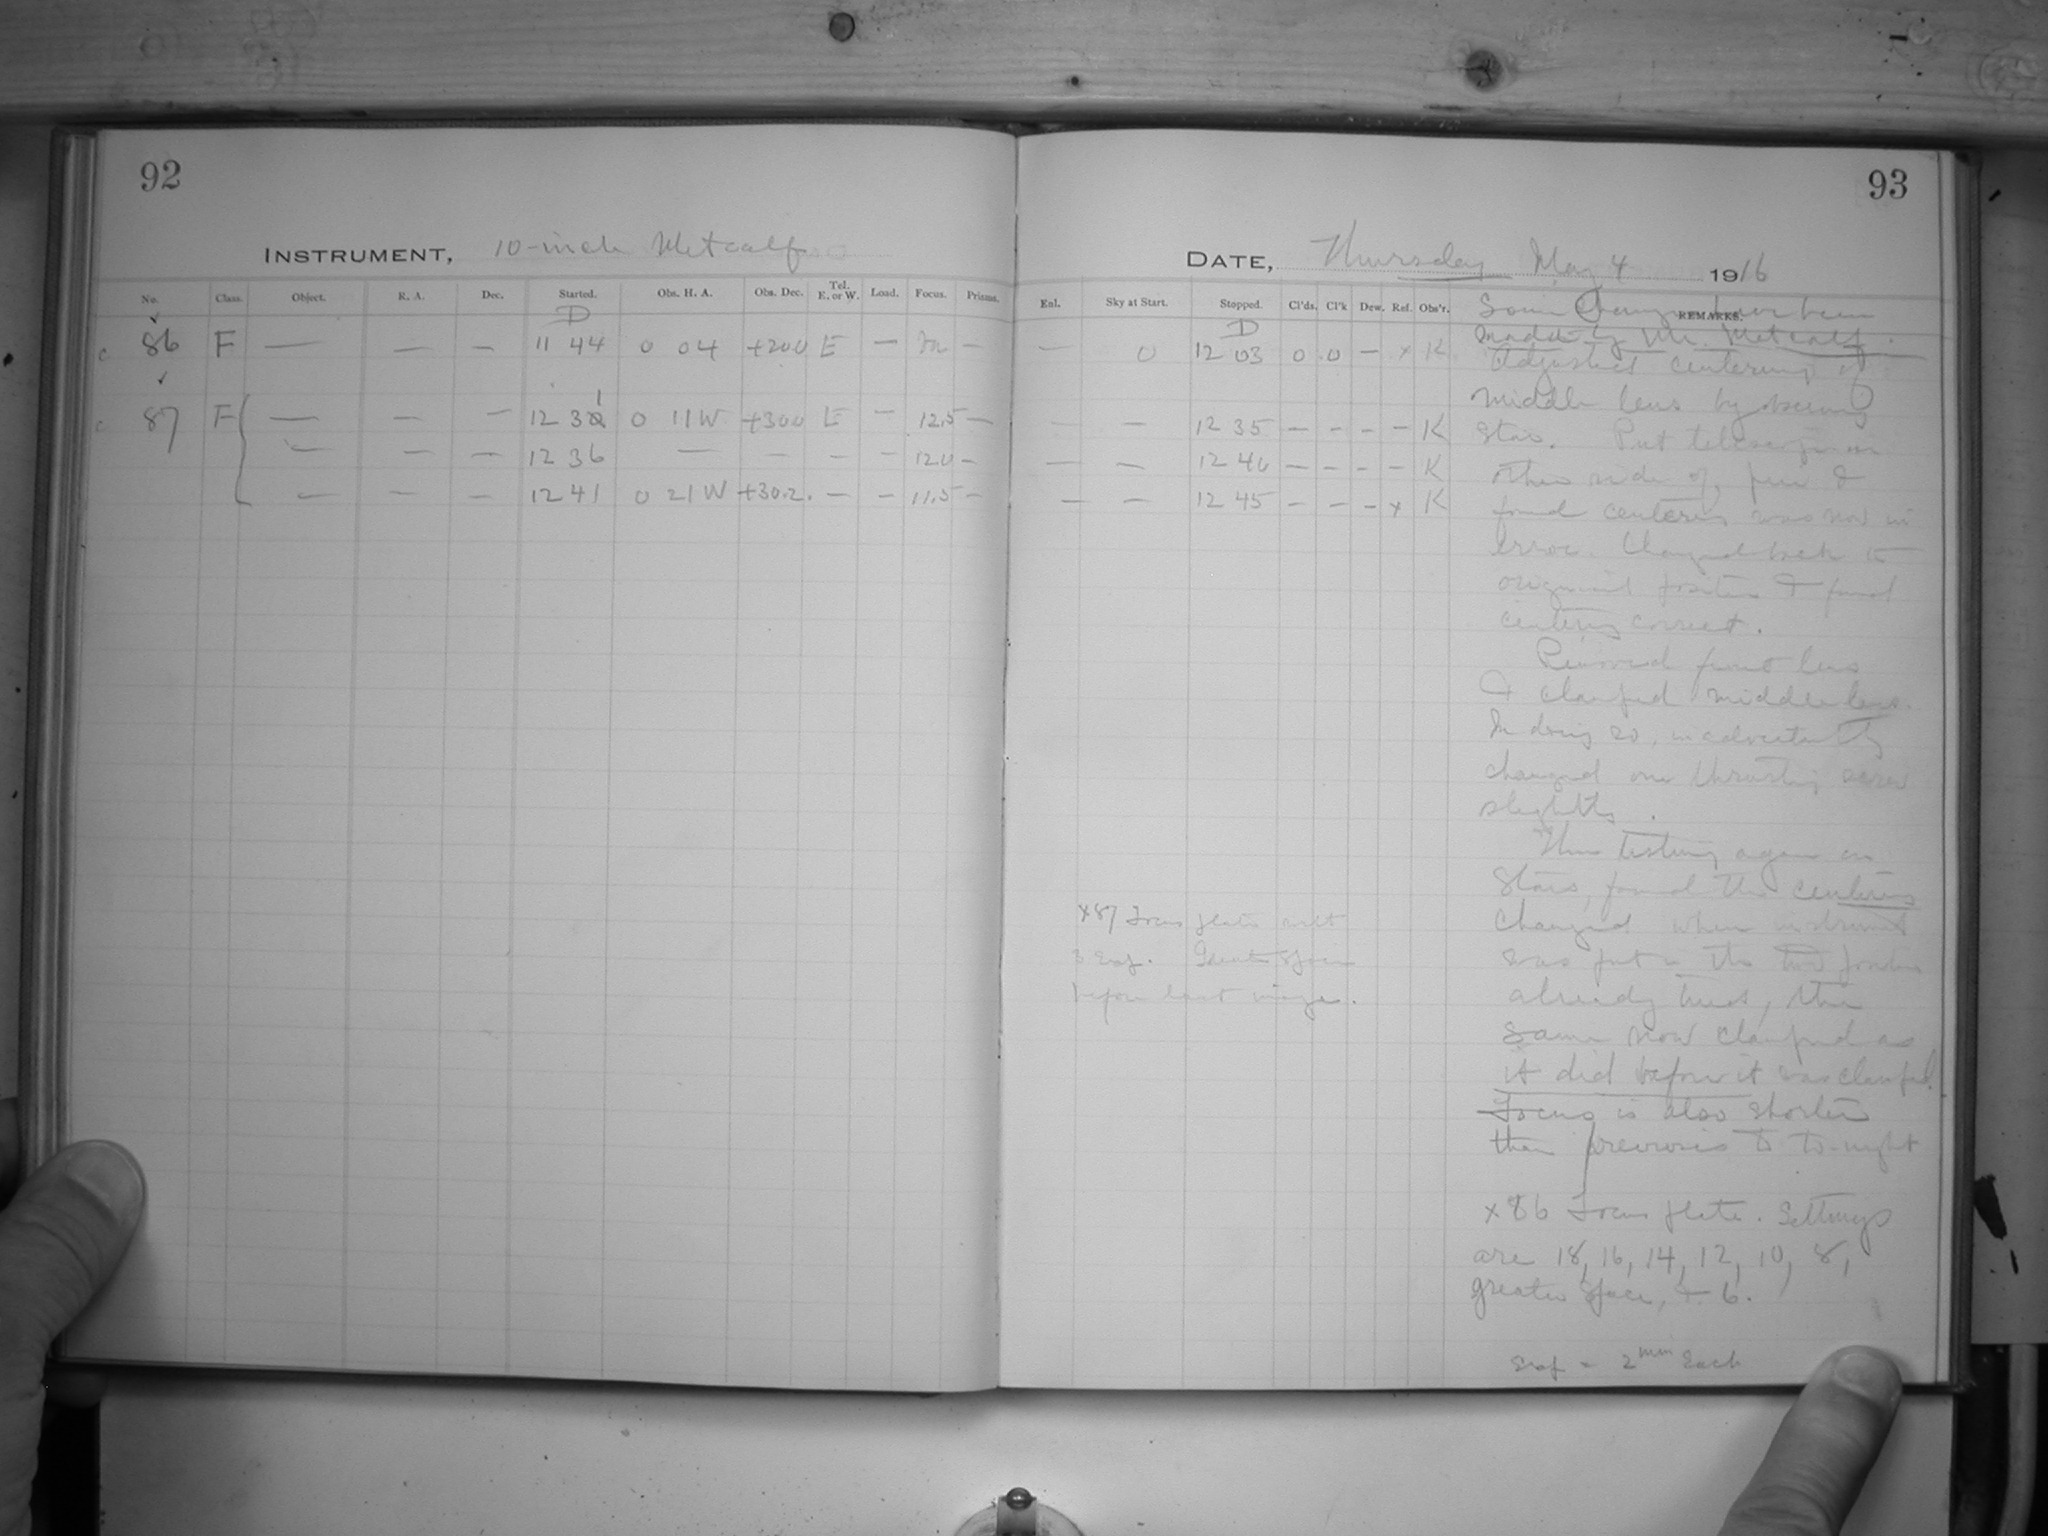 92
93
INSTRUMENT, 10-inch Metcalf
DATE, Thursday May 4 1916
No. Class. Object. R. A. Dec. Started. Obs. H. A. Obs. Dec. Tel. E. or W. Load. Focus. Prisms.
Enl. Sky at Start. Stopped. Cl'ds. Cl'k Dew. Ref. Obs'r. REMARKS.
D
D
c 86 F — — — 11 44 0 04 +200 E — m — — 0 12 03 0 0 — x K
c 87 F — — — 12 31 0 11W +300 E — 12.5 — — — 12 35 — — — — K
— — — 12 36 — — — — 12.0 — — — 12 40 — — — — K
— — — 12 41 0 21W +30.2. — — 11.5 — — — 12 45 — — — x K
Some changes have been
made by Mr. Metcalf.
Adjusted centering of
middle lens by
star. Put telescope on
other side of pier &
found centering was now in
error. Changed back to
original position & found
centering correct.
Removed front lens
& clamped middle lens.
In doing so, inadvertently
changed one thrusting screw
slightly.
Then testing again on
stars, found the centering
changed when instrument
was put in the two positions
already tried, the
same now clamped as
it did before it was clamped.
Focus is also shorter
than previous to to-night
x 86 Focus plate. Settings
are 18, 16, 14, 12, 10, 8,
greater space, & 6.
= 2mm Each
x87 Focus plate with
3 Exp. Greater space
before last image.